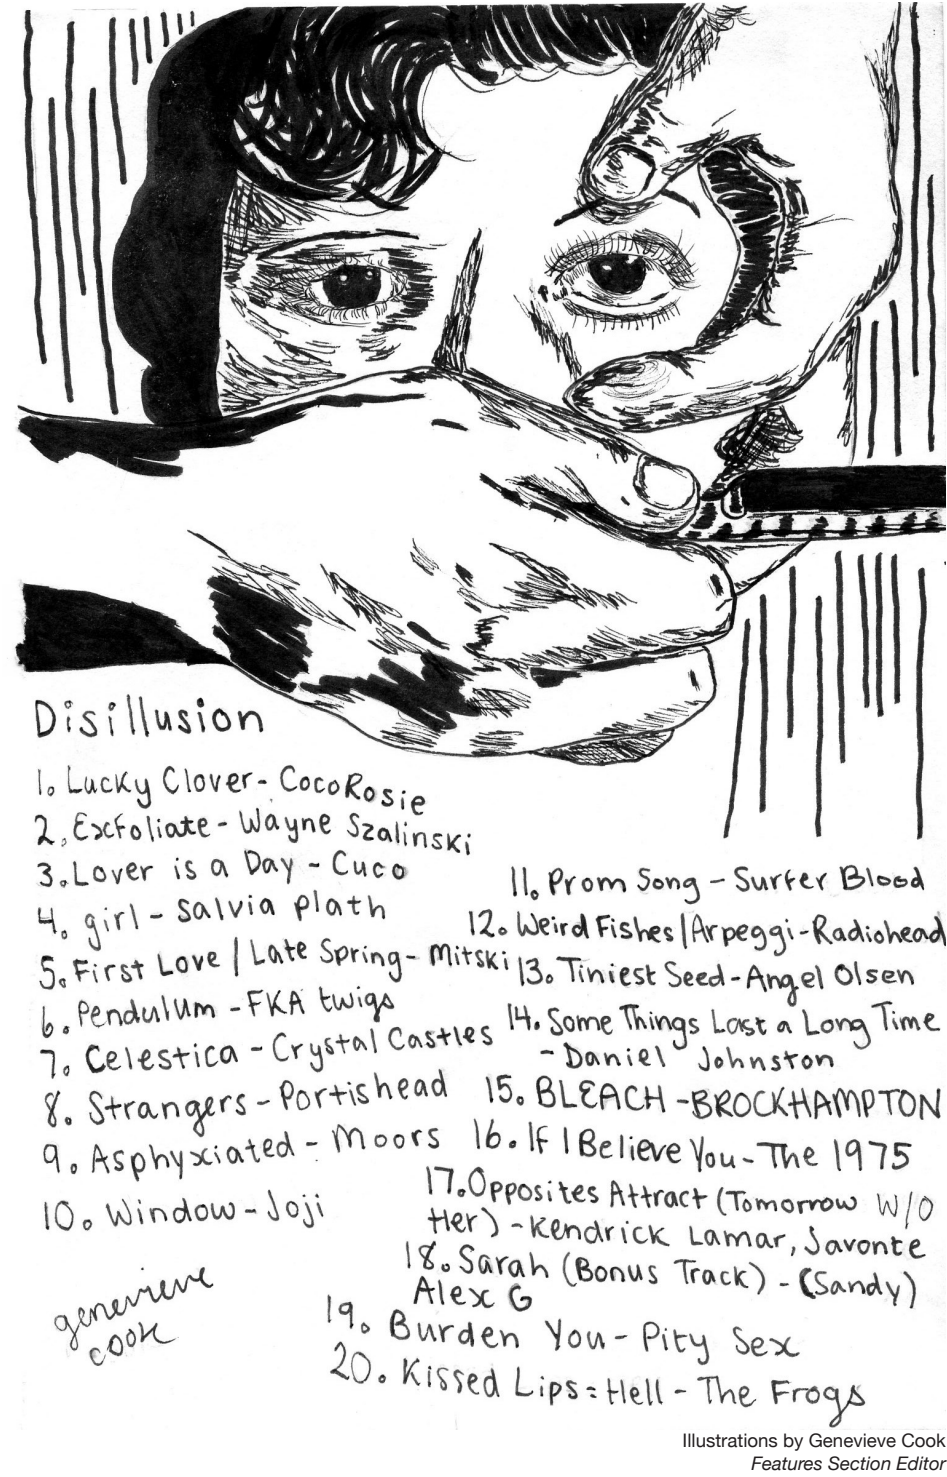 Disillusion
1. Lucky Clover - CocoRosie
2. Exfoliate - Wayne Szalinski
3. Lover is a Day - Cuco
4. girl - Salvia Plath
5. First Love / Late Spring - Mitski
6. Pendulum - FKA twigs
7. Celestica - Crystal Castles
8. Strangers - Portishead
9. Asphyxiated - Moors
10. Window - Joji
11. Prom Song - Surfer Blood
12. Weird Fishes / Arpeggi - Radiohead
13. Tiniest Seed - Angel Olsen
14. Some Things Last a Long Time
- Daniel Johnston
15. BLEACH - BROCKHAMPTON
16. If I Believe You - The 1975
17. Opposites Attract (Tomorrow W/O
Her) - Kendrick Lamar, Javonte
18. Sarah (Bonus Track) - (Sandy)
Alex G
19. Burden You - Pity Sex
20. Kissed Lips = Hell - The Frogs
genevieve
cook
Illustrations by Genevieve Cook
Features Section Editor